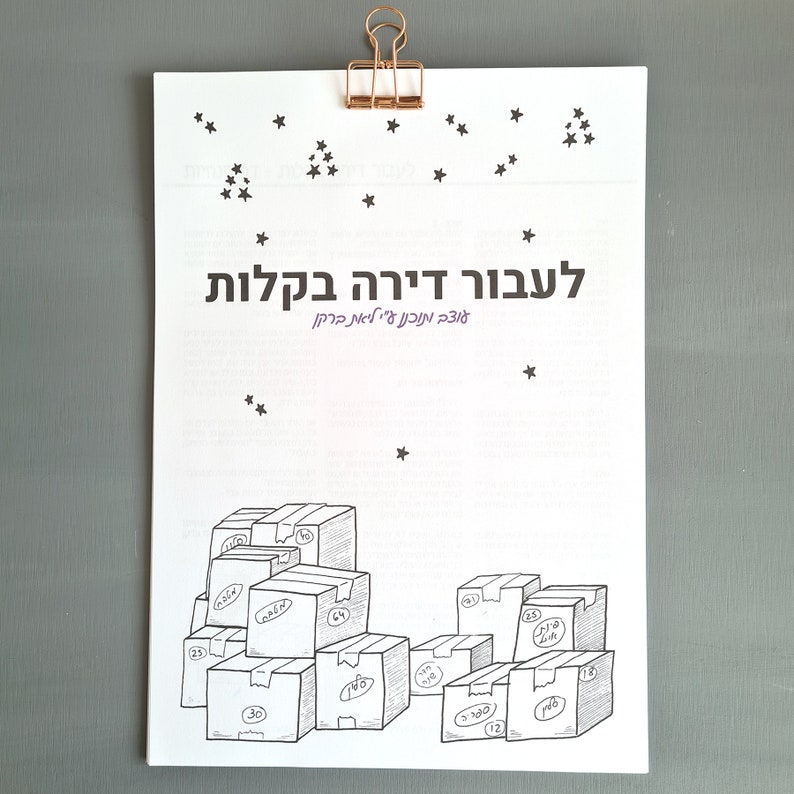 לעבור דירה בקלות
עוצב ותוכנן ע״י ליאת ברקן
סלון
40
מטבח
מטבח
64
25
30
סלון
71
25
פינת
אוכל
חדר
שינה
18
ספריה
12
סלון